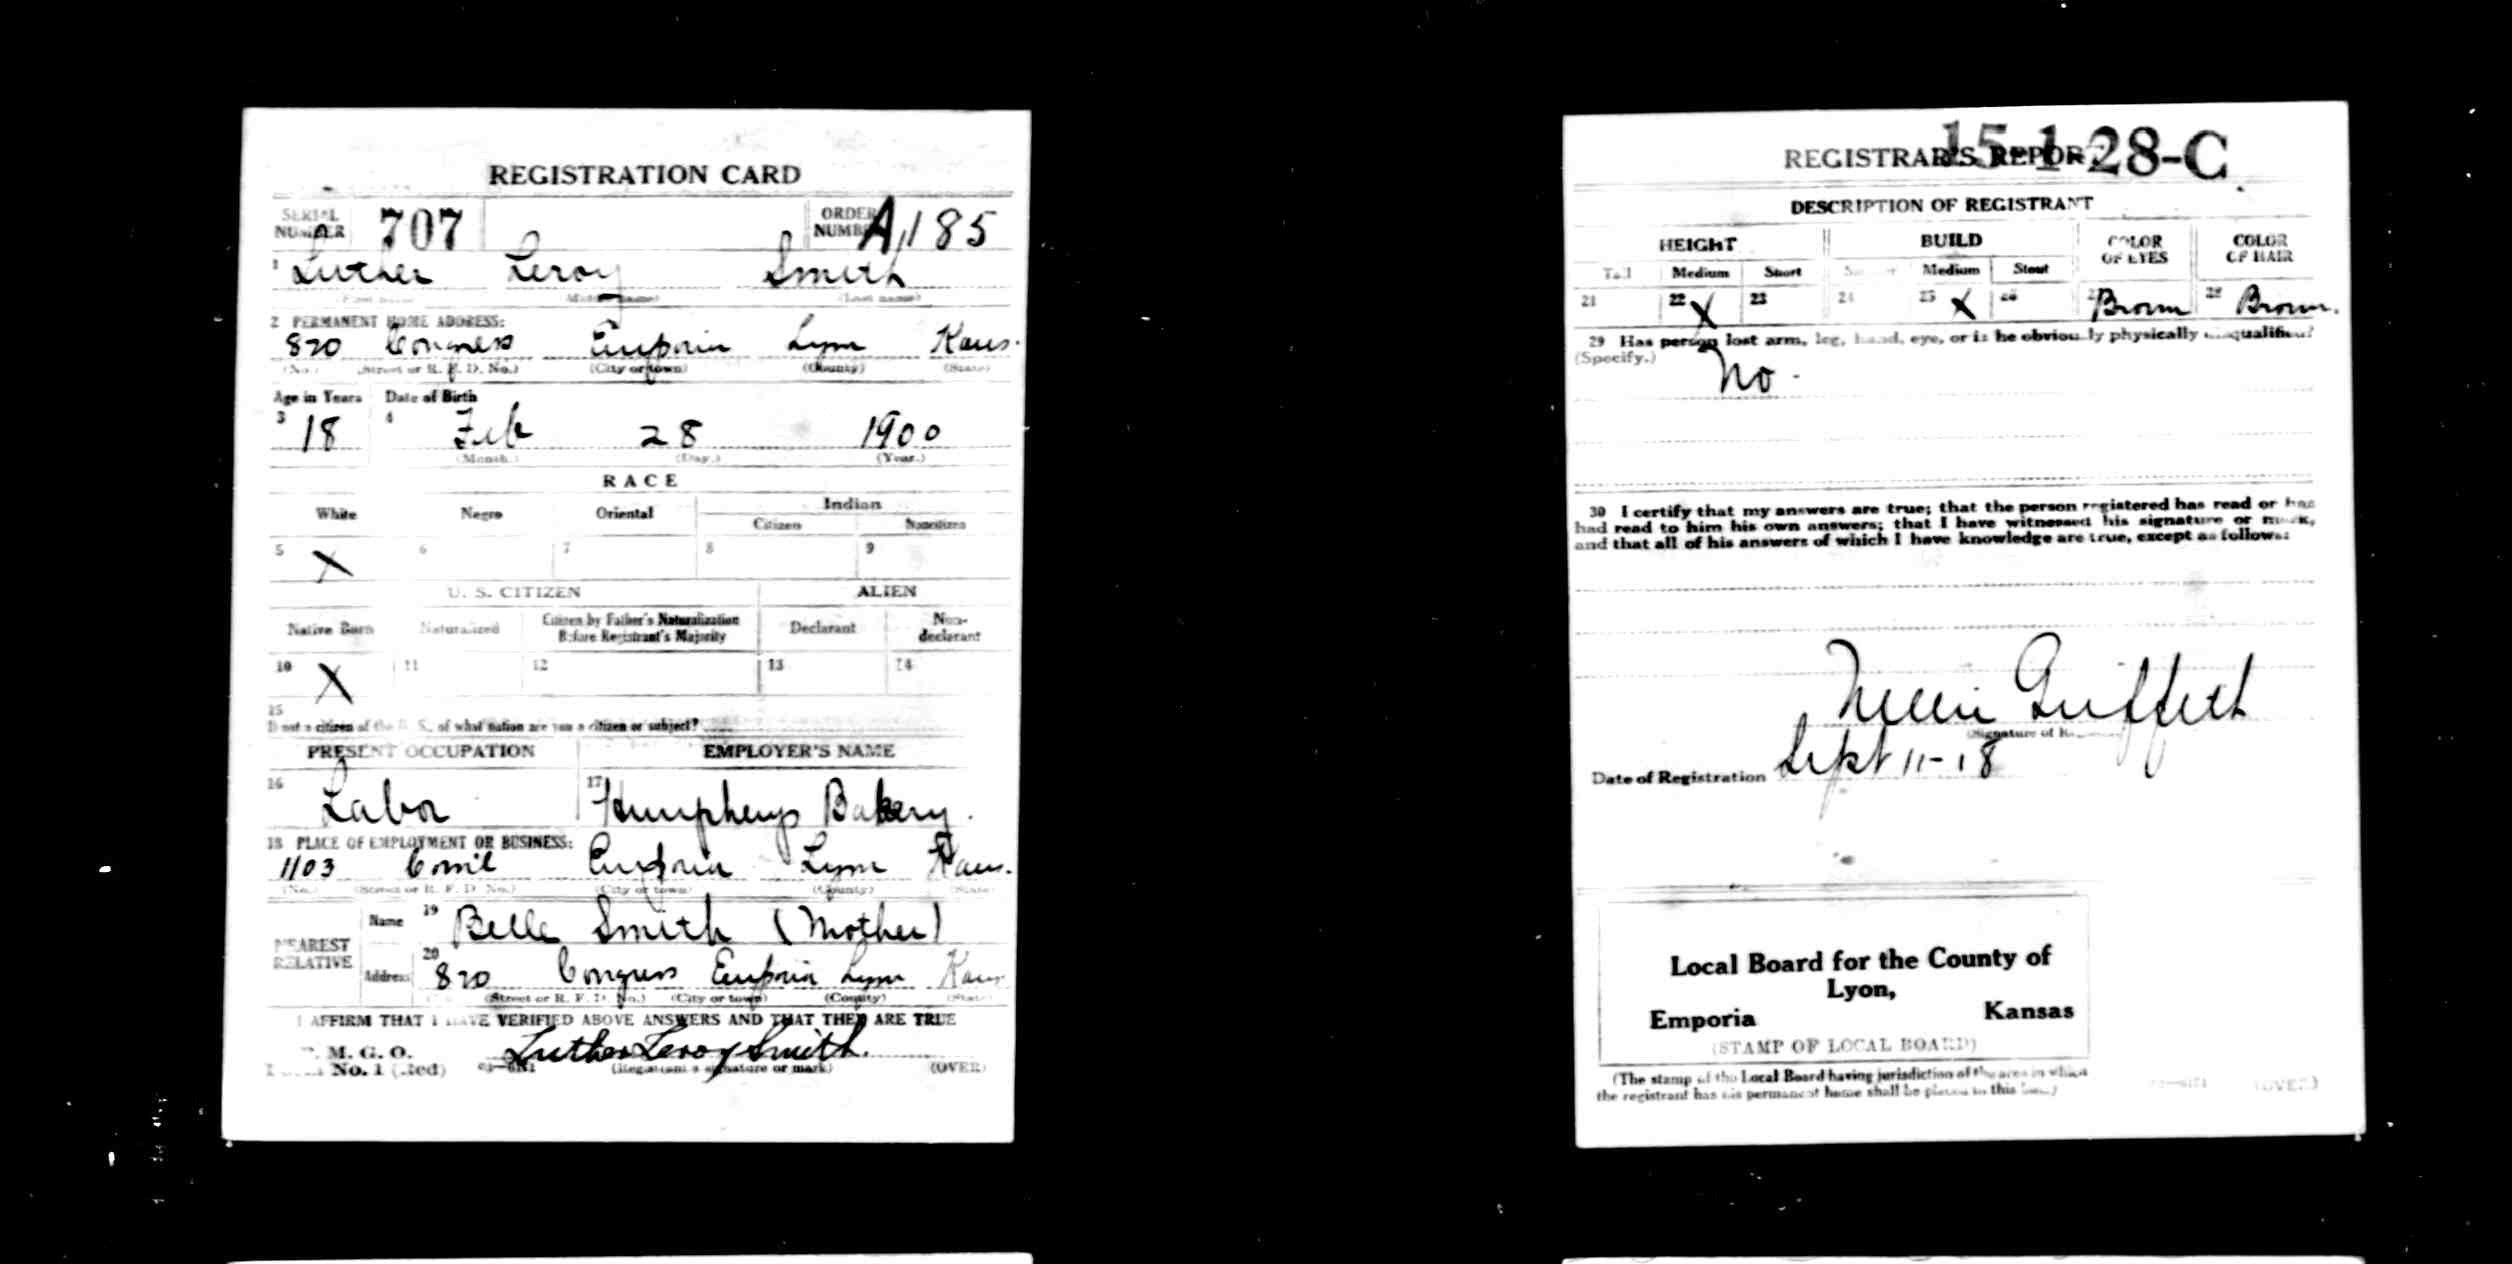 REGISTRATION CARD
SERIAL NUMBER 707 ORDER NUMBER A185
1 Luther Leroy Smith
(First name) (Middle name) (Last name)
2 PERMANENT HOME ADDRESS:
820 Congress Emporia Lyon Kans.
(No.) (Street or R. F. D. No.) (City or town) (County) (State)
Age in Years Date of Birth
3 18 4 Feb 28 1900
(Month.) (Day.) (Year.)
RACE
White Negro Oriental Indian
Citizen Noncitizen
5 X 6 7 8 9
U. S. CITIZEN ALIEN
Native Born Naturalized Citizen by Father's Naturalization Before Registrant's Majority Declarant Non-declarant
10 X 11 12 13 14
15
If not a citizen of the U. S., of what nation are you a citizen or subject?
PRESENT OCCUPATION EMPLOYER'S NAME
16 Labor 17 Humphreys Bakery.
18 PLACE OF EMPLOYMENT OR BUSINESS:
1103 Coml Emporia Lyon Kans.
(No.) (Street or R. F. D. No.) (City or town) (County) (State)
NEAREST RELATIVE Name 19 Belle Smith (Mother)
Address 20 820 Congress Emporia Lyon Kans
(Street or R. F. D. No.) (City or town) (County) (State)
I AFFIRM THAT I HAVE VERIFIED ABOVE ANSWERS AND THAT THEY ARE TRUE
P. M. G. O.
Form No. 1 (Red) Luther Leroy Smith.
(Registrant's signature or mark) (OVER)
15-1-28-C
REGISTRAR'S REPORT
DESCRIPTION OF REGISTRANT
HEIGHT BUILD COLOR OF EYES COLOR OF HAIR
Tall Medium Short Slender Medium Stout
21 22 X 23 24 25 X 26 27 Brown 28 Brown.
29 Has person lost arm, leg, hand, eye, or is he obviously physically disqualified?
(Specify.) No.
30 I certify that my answers are true; that the person registered has read or has
had read to him his own answers; that I have witnessed his signature or mark,
and that all of his answers of which I have knowledge are true, except as follows:
Nellie Griffith
(Signature of Registrar)
Date of Registration Sept 11-18
Local Board for the County of
Lyon,
Emporia Kansas
(STAMP OF LOCAL BOARD)
(The stamp of the Local Board having jurisdiction of the area in which
the registrant has his permanent home shall be placed in this box.)
(OVER)